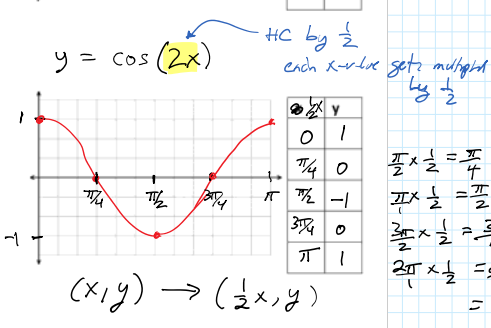 HC by 1/2
y = cos(2x)
each x-value gets multiplied
by 1/2
1
-1
π/4 π/2 3π/4 π
1
1/2x y
0 1
π/4 0
π/2 -1
3π/4 0
π 1
π/2 × 1/2 = π/4
π/1 × 1/2 = π/2
3π/2 × 1/2 = 3
2π/1 × 1/2 =
=
(x,y) → (1/2x, y)